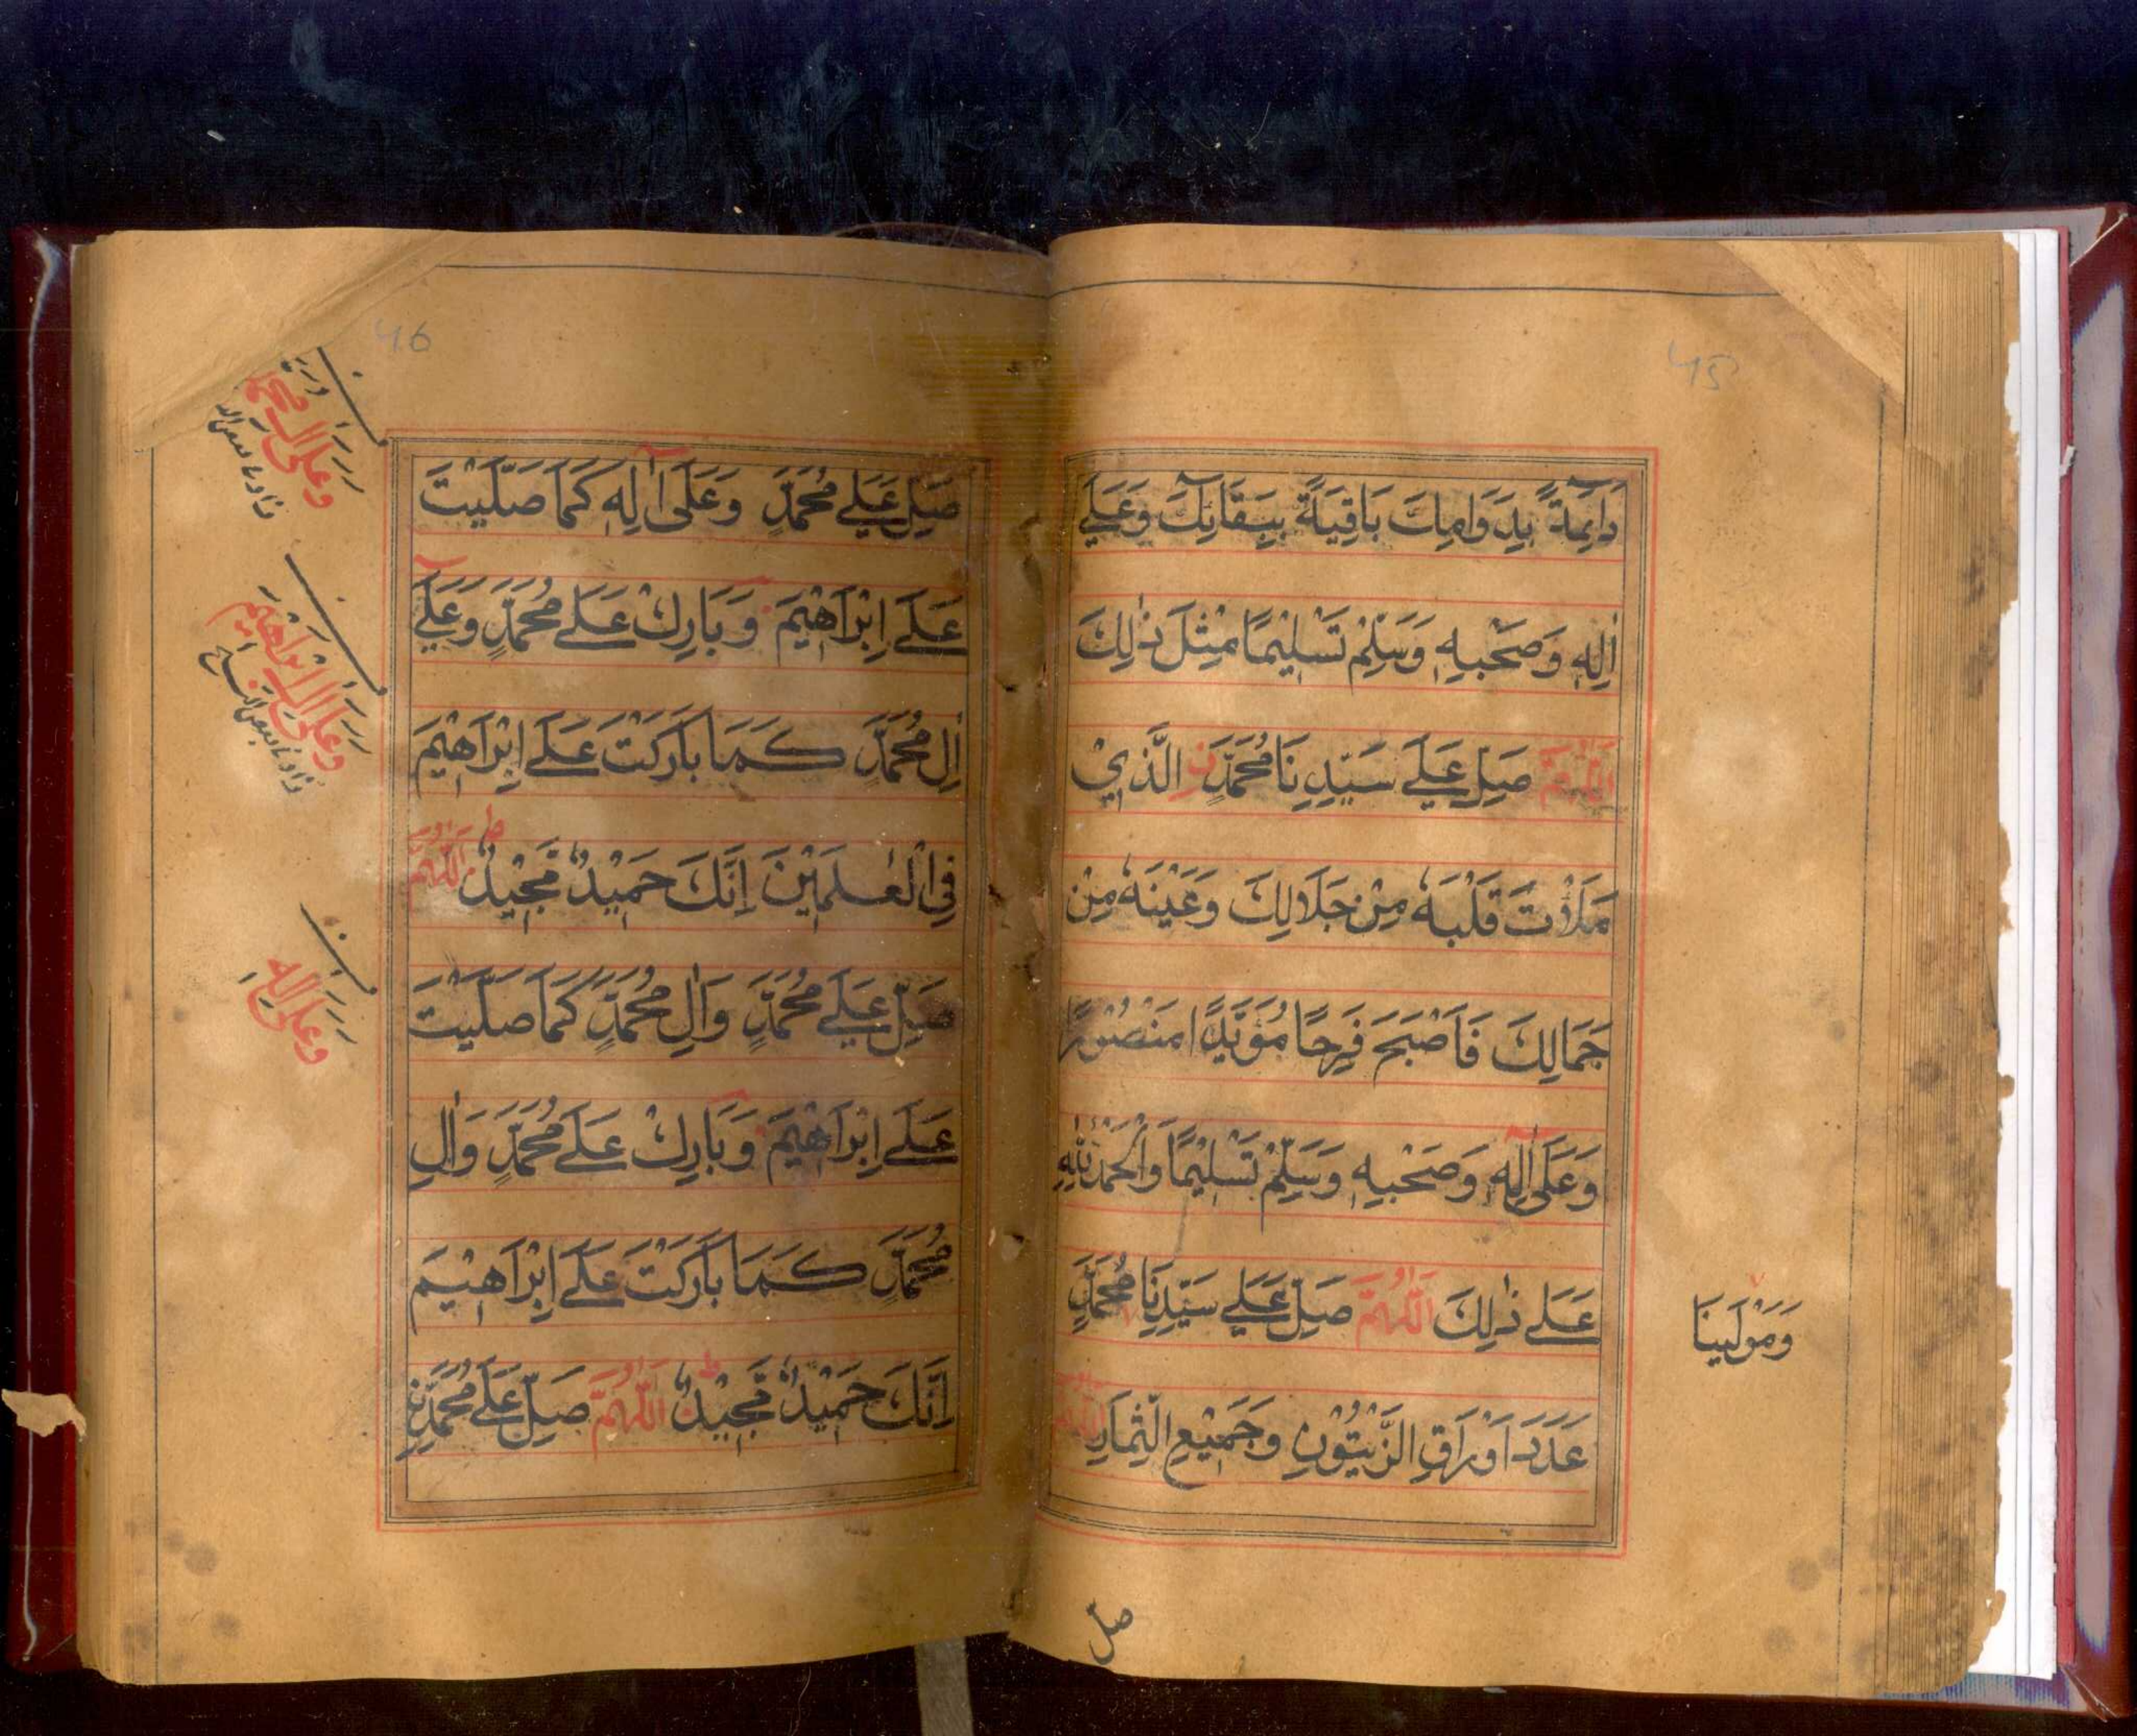 45
دَآئِمَةً بِدَوَامِكَ بَاقِيَةً بِبَقَآئِكَ وَعَلٰے
اٰلِهٖ وَصَحْبِهٖ وَسَلِّمْ تَسْلِيْمًا مِثْلَ ذٰلِكَ
اَللّٰهُمَّ صَلِّ عَلٰے سَيِّدِنَا مُحَمَّدٍ نِ الَّذِيْ
مَلَاْتَ قَلْبَهٗ مِنْ جَلَالِكَ وَعَيْنَهٗ مِنْ
جَمَالِكَ فَاَصْبَحَ فَرِحًا مُؤَيَّدًا مَنْصُوْرًا
وَعَلٰٓى اٰلِهٖ وَصَحْبِهٖ وَسَلِّمْ تَسْلِيْمًا وَالْحَمْدُ لِلّٰهِ
عَلٰے ذٰلِكَ اَللّٰهُمَّ صَلِّ عَلٰے سَيِّدِنَا مُحَمَّدٍ
وَمَوْلٰينَا
عَدَدَ اَوْرَاقِ الزَّيْتُوْنِ وَجَمِيْعِ الثِّمَارِ اَللّٰهُمَّ
صل
46
صَلِّ عَلٰے مُحَمَّدٍ وَعَلٰٓى اٰلِهٖ كَمَا صَلَّيْتَ
عَلٰٓے اِبْرَاهِيْمَ وَبَارِكْ عَلٰے مُحَمَّدٍ وَعَلٰٓے
اٰلِ مُحَمَّدٍ كَمَا بَارَكْتَ عَلٰٓے اِبْرَاهِيْمَ
فِى الْعٰلَمِيْنَ اِنَّكَ حَمِيْدٌ مَّجِيْدٌ ط اَللّٰهُمَّ
صَلِّ عَلٰے مُحَمَّدٍ وَاٰلِ مُحَمَّدٍ كَمَا صَلَّيْتَ
عَلٰٓے اِبْرَاهِيْمَ وَبَارِكْ عَلٰے مُحَمَّدٍ وَاٰلِ
مُحَمَّدٍ كَمَا بَارَكْتَ عَلٰٓے اِبْرَاهِيْمَ
اِنَّكَ حَمِيْدٌ مَّجِيْدٌ ط اَللّٰهُمَّ صَلِّ عَلٰے مُحَمَّدٍ نِ
وَعَلٰٓى اٰلِ
وَعَلٰٓى اٰلِ اِبْرَاهِيْمَ
وَعَلٰٓى اٰلِهٖ